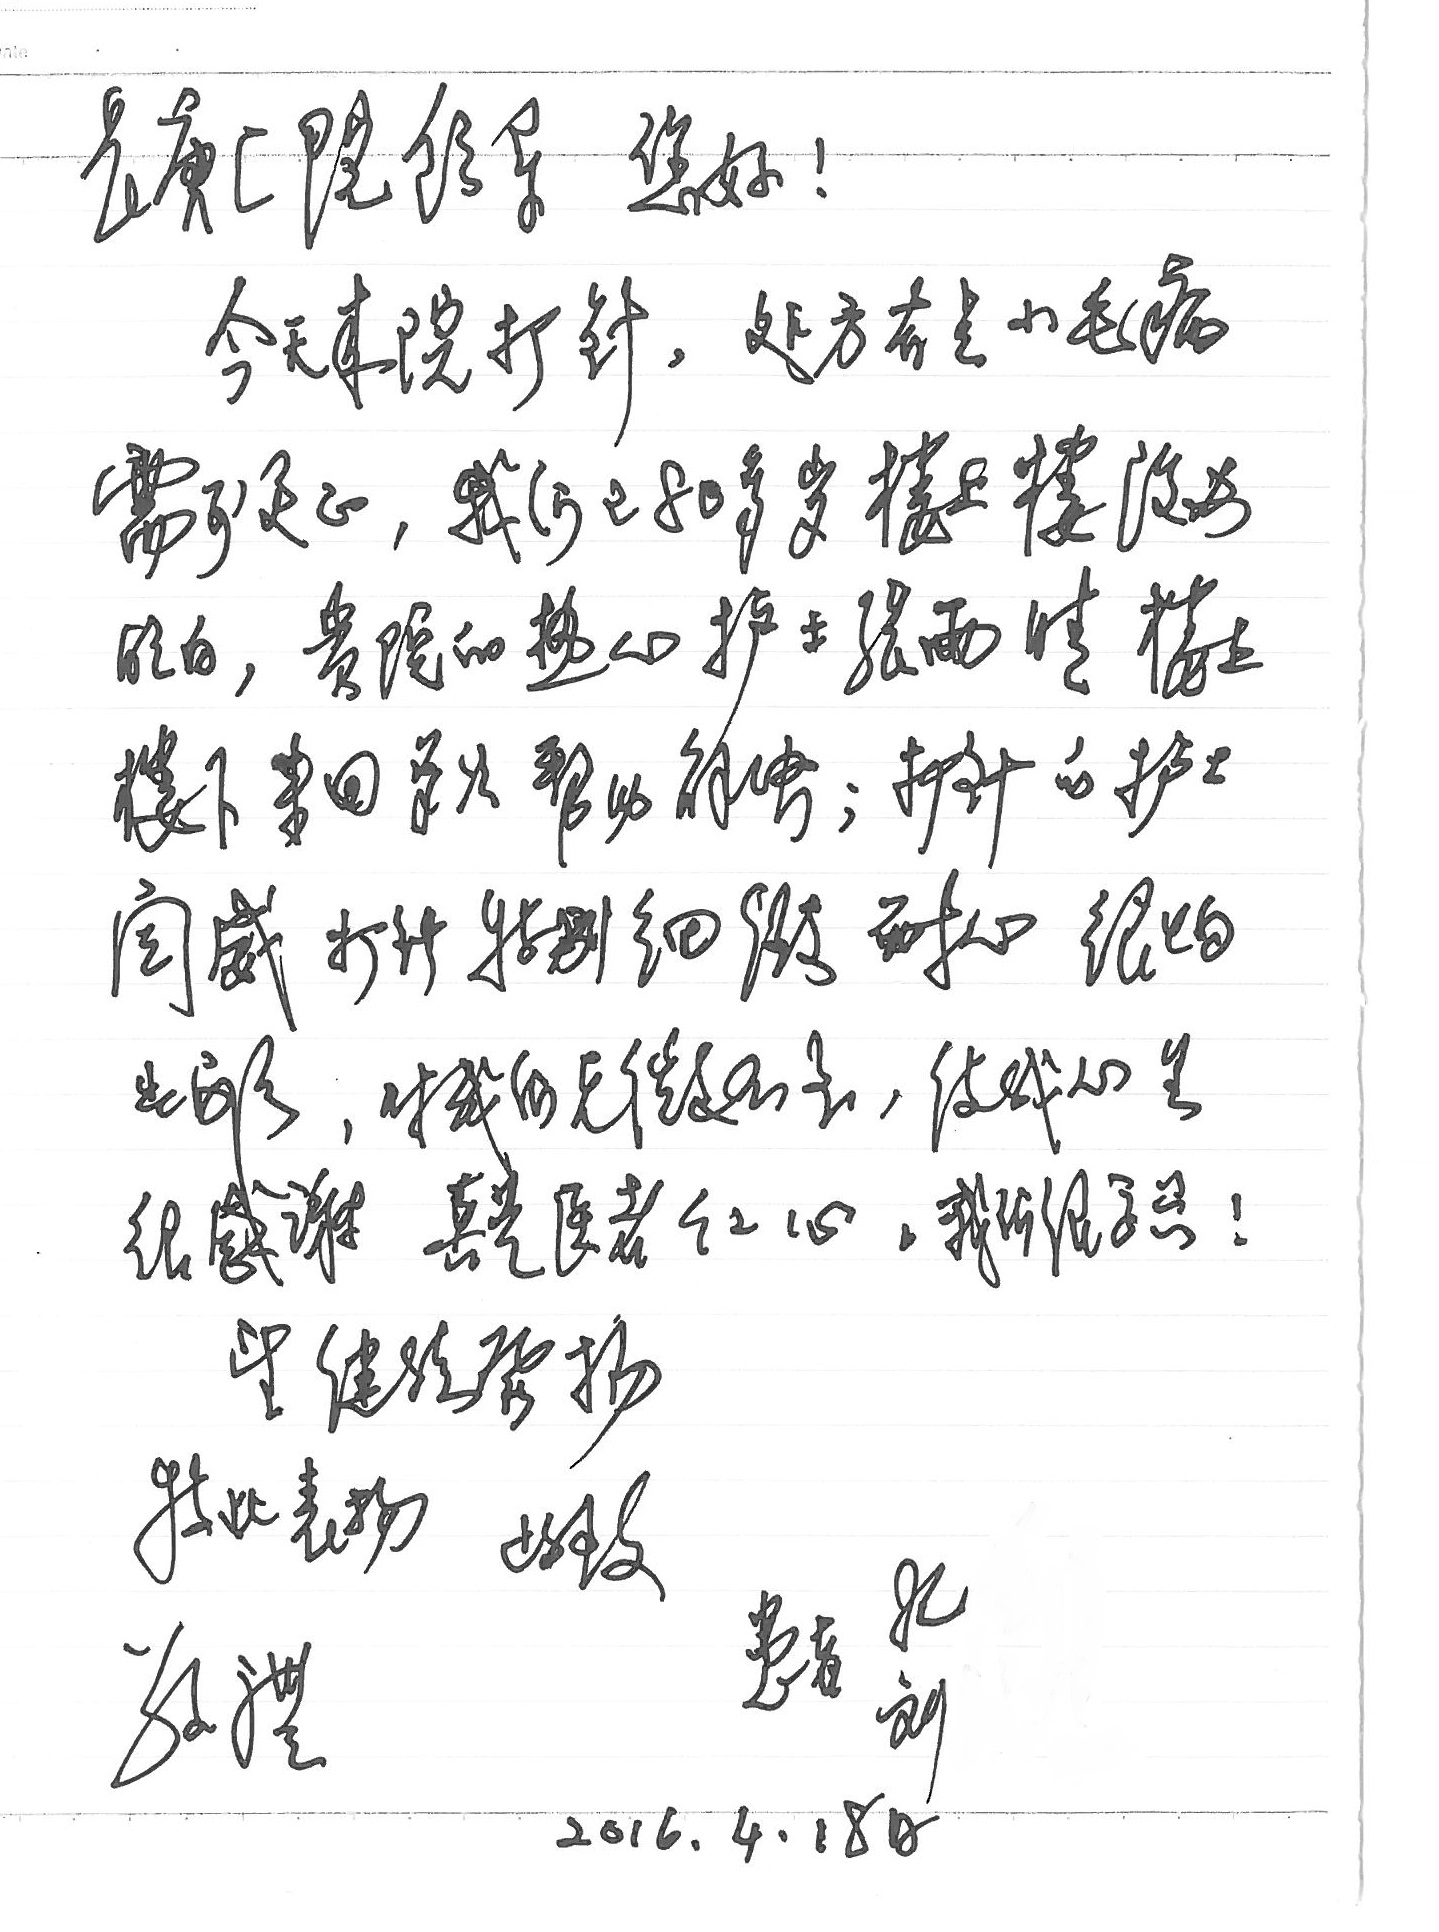 长庚医院领导 您好!
今天来院打针，处方有点小毛病
需要更正，我们已80多岁楼上楼没
明白，贵院的热心护士张雨晴楼上
楼下来回多次帮助解决；打针的护士
闫威打针特别细致耐心 很怕
出，对我们无微不至，使我心里
很感谢 真是医者仁心，我们很感！
望继续发扬
特此表扬 此致
敬礼
患者 孔
刘
2016.4.18日